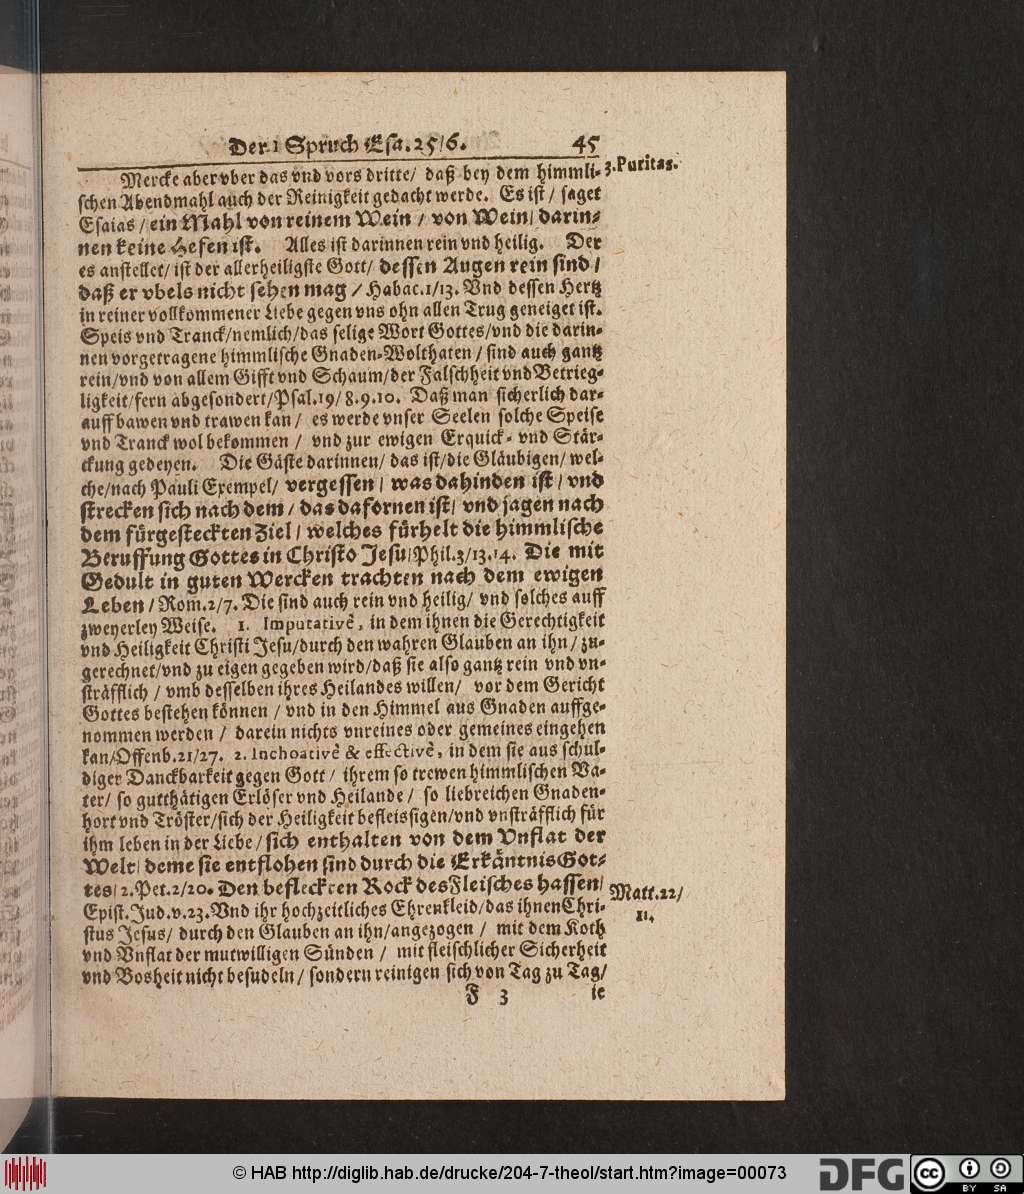 Der 1 Spruch Esa. 25/6. 45
Mercke aber vber das vnd vors dritte/ daß bey dem himmli-
3. Puritas.
schen Abendmahl auch der Reinigkeit gedacht werde. Es ist / saget
Esaias / ein Mahl von reinem Wein / von Wein/ darin-
nen keine Hefen ist. Alles ist darinnen rein vnd heilig. Der
es anstellet/ ist der allerheiligste Gott/ dessen Augen rein sind /
daß er vbels nicht sehen mag / Habac. 1/13. Vnd dessen Hertz
in reiner vollkommener Liebe gegen vns ohn allen Trug geneiget ist.
Speis vnd Tranck/nemlich/das selige Wort Gottes/vnd die darin-
nen vorgetragene himmlische Gnaden-Wolthaten / sind auch gantz
rein/vnd von allem Gifft vnd Schaum/der Falschheit vnd Betrieg-
ligkeit/fern abgesondert/Psal. 19/ 8. 9. 10. Daß man sicherlich dar-
auff bawen vnd trawen kan / es werde vnser Seelen solche Speise
vnd Tranck wol bekommen / vnd zur ewigen Erquick- vnd Stär-
ckung gedeyen. Die Gäste darinnen/ das ist/die Gläubigen/ wel-
che/nach Pauli Exempel/ vergessen / was dahinden ist / vnd
strecken sich nach dem / das dafornen ist/ vnd jagen nach
dem fürgesteckten Ziel / welches fürhelt die himmlische
Beruffung Gottes in Christo Jesu/Phil. 3/13. 14. Die mit
Gedult in guten Wercken trachten nach dem ewigen
Leben / Rom. 2/7. Die sind auch rein vnd heilig/ vnd solches auff
zweyerley Weise. 1. Imputativè, in dem ihnen die Gerechtigkeit
vnd Heiligkeit Christi Jesu/durch den wahren Glauben an ihn / zu-
gerechnet/vnd zu eigen gegeben wird/daß sie also gantz rein vnd vn-
sträfflich / vmb desselben ihres Heilandes willen/ vor dem Gericht
Gottes bestehen können / vnd in den Himmel aus Gnaden auffge-
nommen werden / darein nichts vnreines oder gemeines eingehen
kan/Offenb. 21/27. 2. Inchoativè & effectivè, in dem sie aus schul-
diger Danckbarkeit gegen Gott / ihrem so trewen himmlischen Va-
ter/ so gutthätigen Erlöser vnd Heilande / so liebreichen Gnaden-
hort vnd Tröster/sich der Heiligkeit befleissigen/vnd vnsträfflich für
ihm leben in der Liebe / sich enthalten von dem Vnflat der
Welt/ deme sie entflohen sind durch die Erkäntnis Got-
tes/ 2. Pet. 2/20. Den befleckten Rock des Fleisches hassen/
Matt. 22/
11.
Epist. Jud. v. 23. Vnd ihr hochzeitliches Ehrenkleid/das ihnen Chri-
stus Jesus/ durch den Glauben an ihn/angezogen / mit dem Koth
vnd Vnflat der mutwilligen Sünden / mit fleischlicher Sicherheit
vnd Bosheit nicht besudeln / sondern reinigen sich von Tag zu Tag/
F 3 ie
© HAB http://diglib.hab.de/drucke/204-7-theol/start.htm?image=00073
DFG
cc BY SA